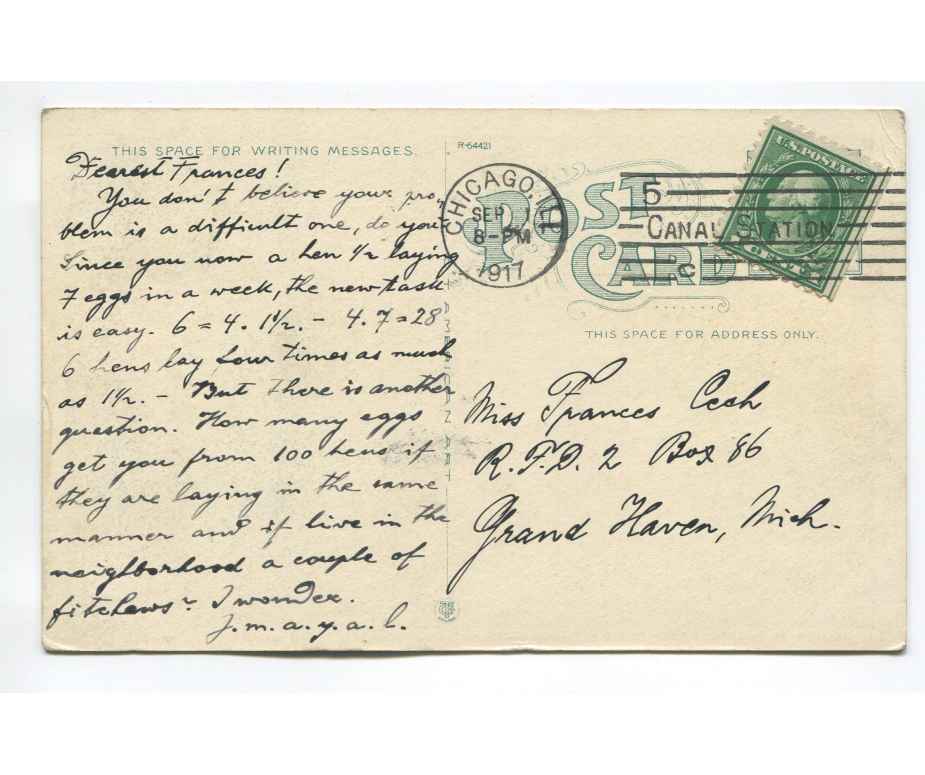 THIS SPACE FOR WRITING MESSAGES.
Dearest Frances!
You don't believe your pro-
blem is a difficult one, do you?
Since you now a hen 1/2 laying
7 eggs in a week, the new task
is easy. 6 = 4. 1 1/2. - 4. 7 = 28
6 hens lay four times as much
as 1 1/2. - But there is another
question. How many eggs
get you from 100 hens if
they are laying in the same
manner and if live in the
neighborhood a couple of
fitchews? I wonder.
J. m. a. y. a. l.
R-54421
POST
CARD
CHICAGO, ILL
SEP 1
8-PM
1917
5
CANAL STATION
C
U.S. POSTAGE
THIS SPACE FOR ADDRESS ONLY.
Miss Frances Cech
R.F.D. 2 Box 86
Grand Haven, Mich.